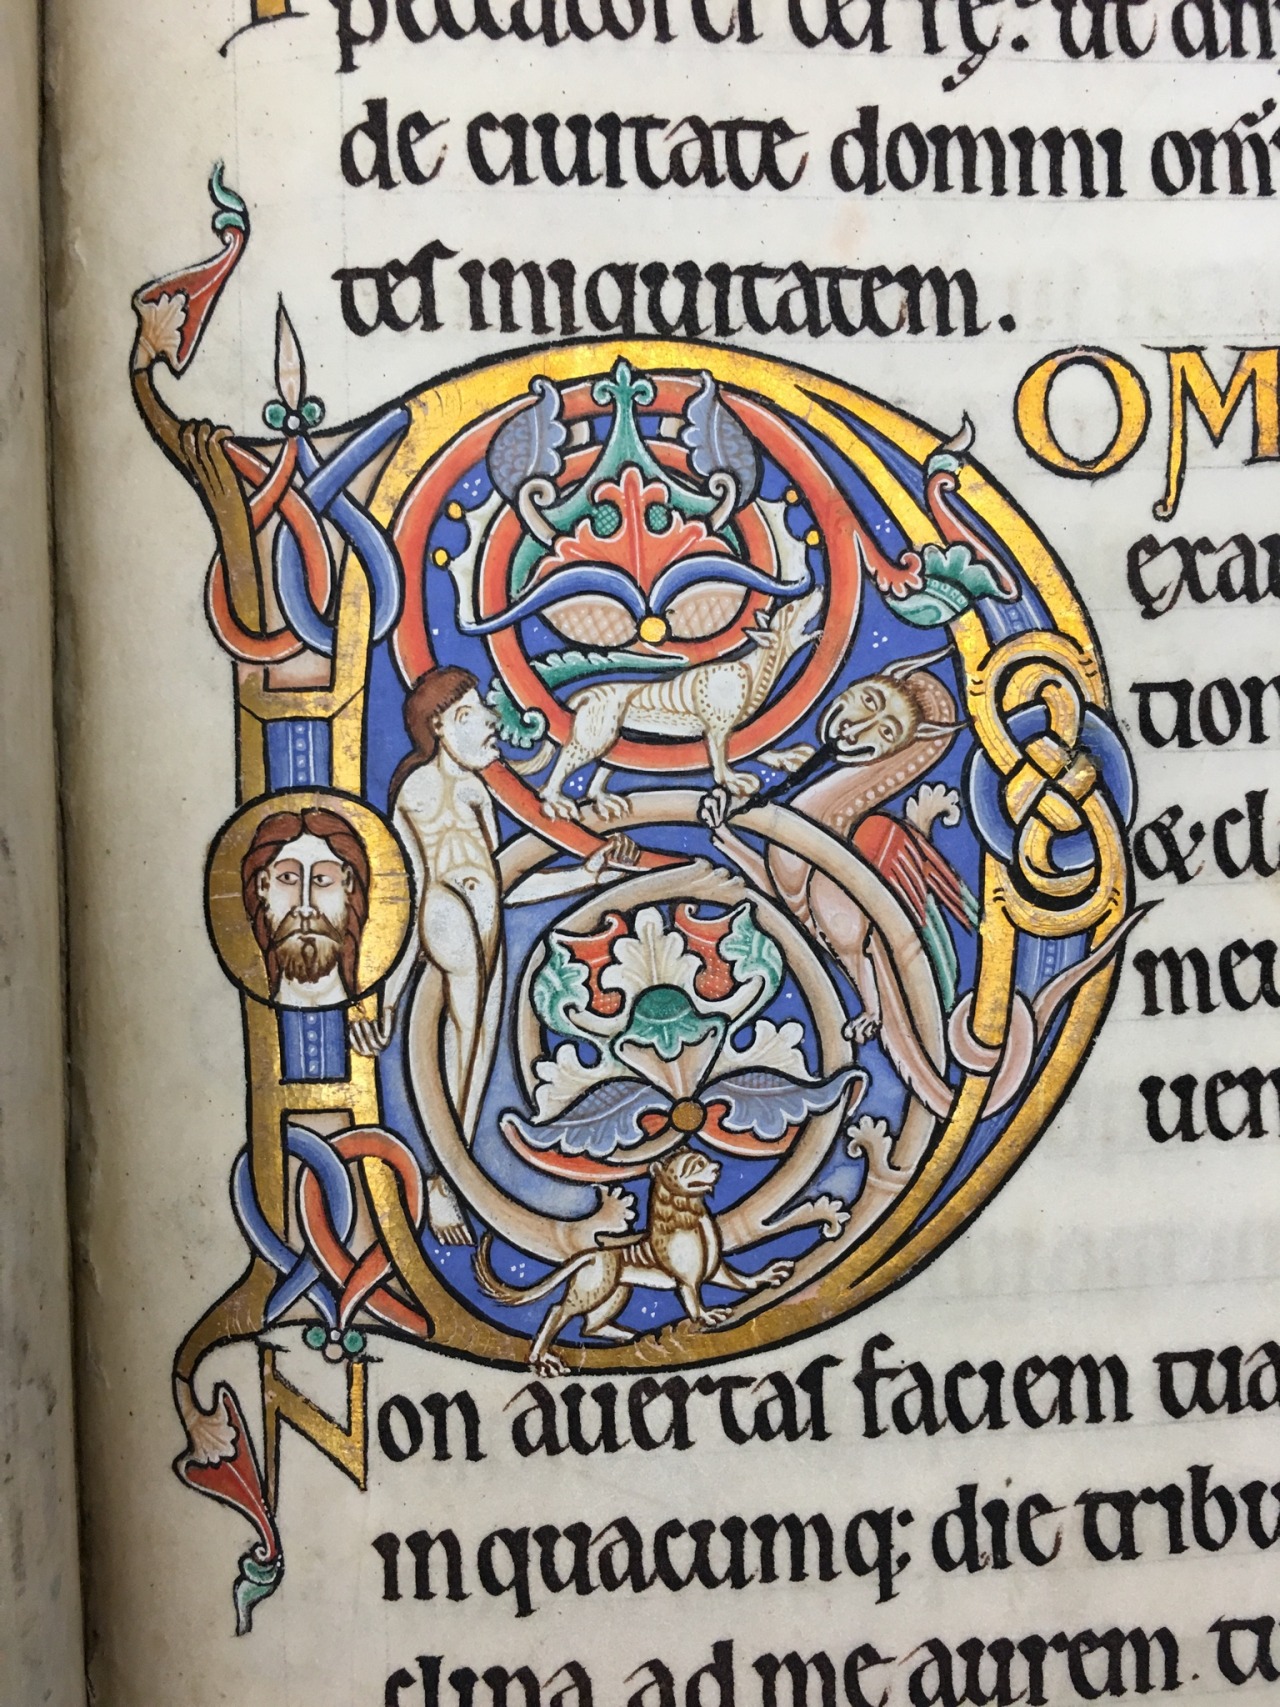 peccatores terrę: ut
de ciuitate domini
tes iniquitatem.
DOM
exau
tion
&·cla
meu
uen
Non auertas faciem tua
in quacumq; die tribu
clina ad me aurem tu